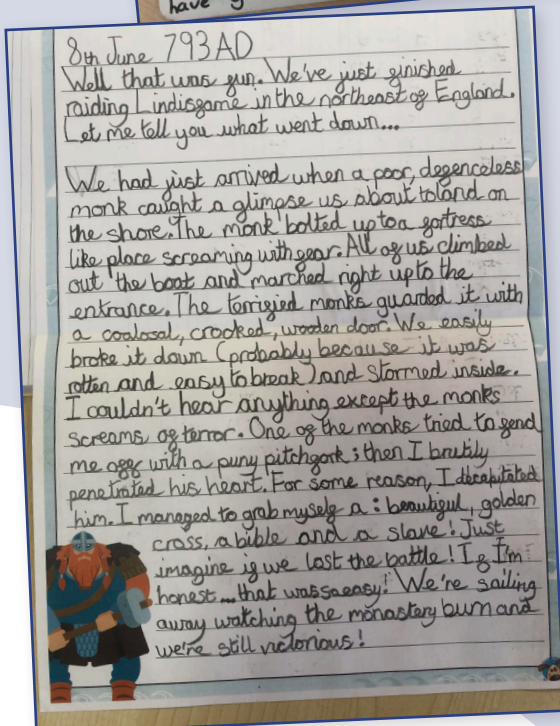 have
8th June 793 AD
Well that was fun. We've just finished
raiding Lindisfarne in the northeast of England.
Let me tell you what went down...
We had just arrived when a poor, defenceless
monk caught a glimpse us about to land on
the shore. The monk bolted up to a fortress
like place screaming with fear. All of us climbed
out the boat and marched right up to the
entrance. The torrified monks guarded it with
a coalosal, crooked, wooden door. We easily
broke it down (probably because it was
rotten and easy to break) and stormed inside.
I couldn't hear anything except the monks
screams of terror. One of the monks tried to fend
me off with a puny pitchfork; then I brutily
penetrated his heart. For some reason, I decapitated
him. I managed to grab myself a: beautiful, golden
cross, a bible and a slave! Just
imagine if we lost the battle! If I'm
honest... that was so easy! We're sailing
away watching the monastery burn and
we're still victorious!